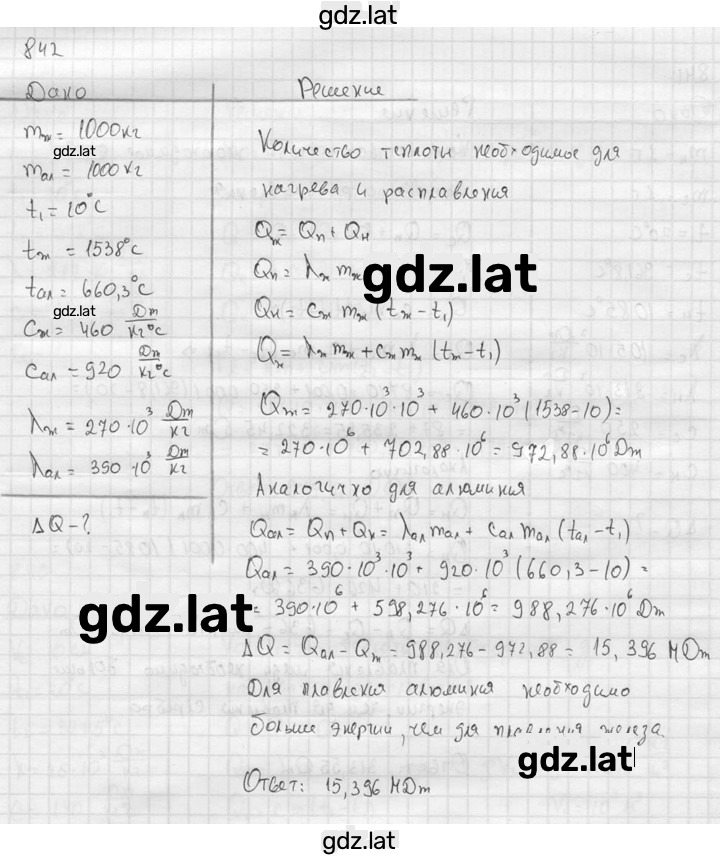 gdz.lat
842
Дано
Решение
mж = 1000 кг
gdz.lat
mал = 1000 кг
t₁ = 10°C
tж = 1538°C
tал = 660,3°C
gdz.lat
Cж = 460 Дж/кг°C
Cал = 920 Дж/кг°C
λж = 270·10³ Дж/кг
λал = 390·10³ Дж/кг
ΔQ - ?
Количество теплоты необходимое для
нагрева и расплавления
Qж = Qп + Qн
Qп = λж mж
gdz.lat
Qн = Cж mж (tж - t₁)
Qж = λж mж + Cж mж (tж - t₁)
Qж = 270·10³·10³ + 460·10³ (1538-10) =
= 270·10⁶ + 702,88·10⁶ = 972,88·10⁶ Дж
Аналогично для алюминия
Qал = Qп + Qн = λал mал + Cал mал (tал - t₁)
Qал = 390·10³·10³ + 920·10³ (660,3-10) =
= 390·10⁶ + 598,276·10⁶ = 988,276·10⁶ Дж
gdz.lat
ΔQ = Qал - Qж = 988,276 - 972,88 = 15,396 МДж
Для плавления алюминия необходимо
больше энергии, чем для плавления железа.
gdz.lat
Ответ: 15,396 МДж
gdz.lat